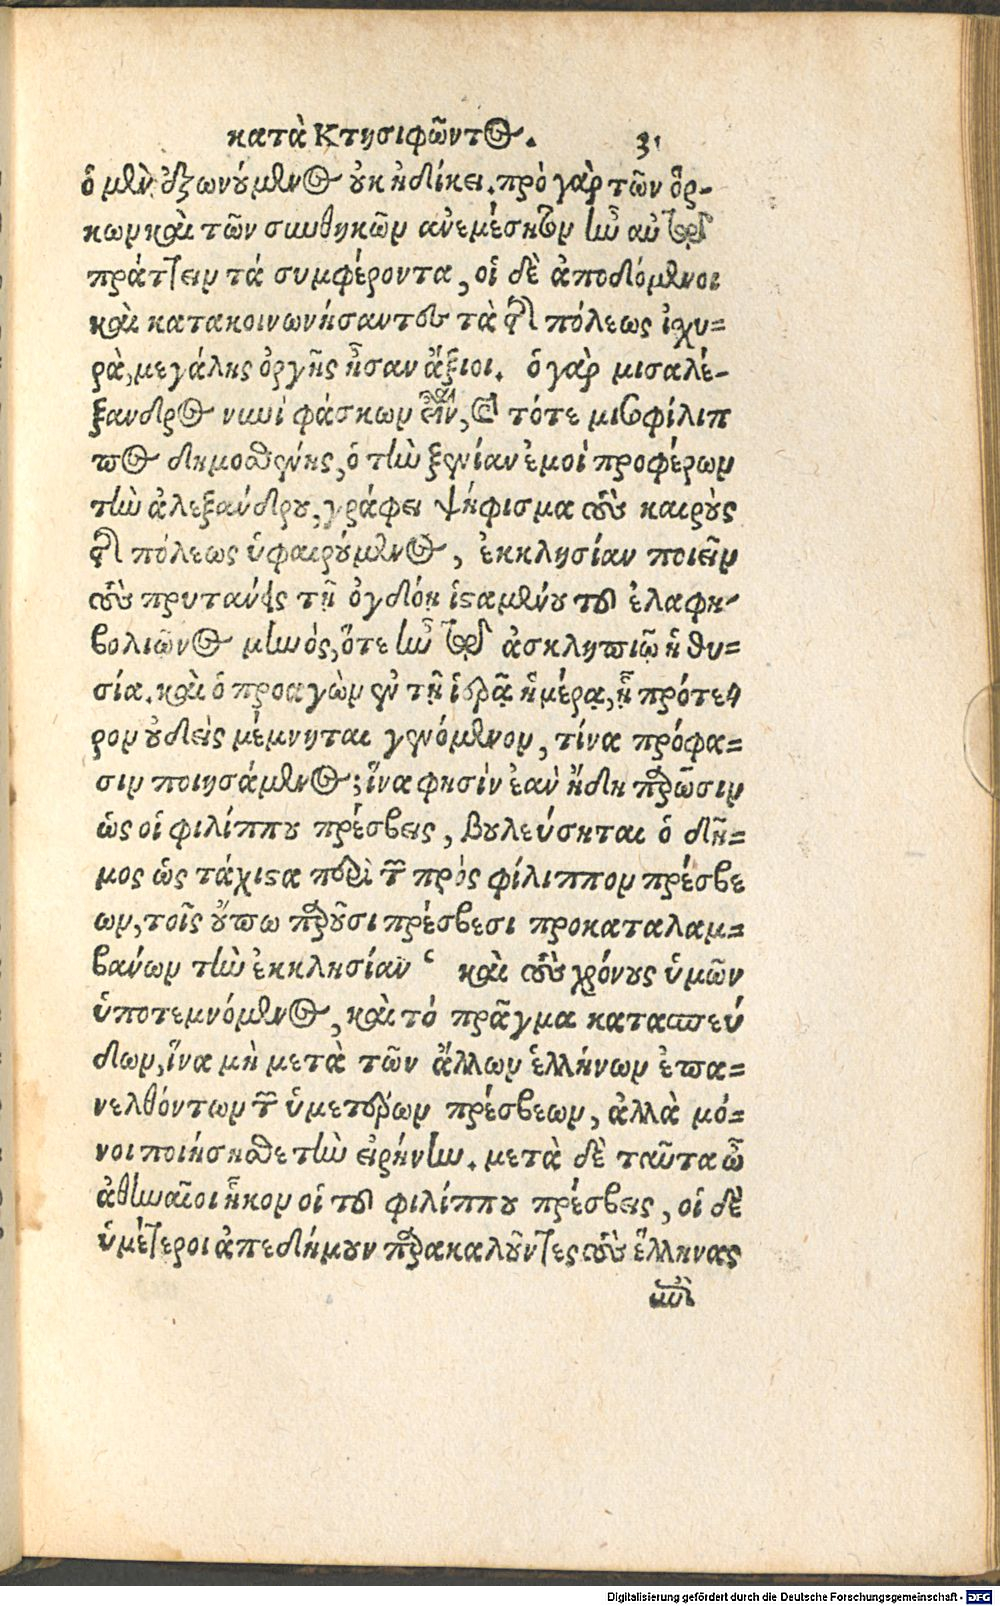 κατὰ Κτησιφῶντος. 31
ὁ μὲν ἐξωνούμενος οὐκ ἠδίκει. πρὸ γὰρ τῶν ὅρ-
κων καὶ τῶν συνθηκῶν ἀνεμέσητον ἦν αὐτῷ
πράττειν τά συμφέροντα, οἱ δὲ ἀποδόμενοι
καὶ κατακοινωνήσαντες τὰ τῆς πόλεως ἰχυ-
ρὰ, μεγάλης ὀργῆς ἦσαν ἄξιοι. ὁ γὰρ μισαλέ-
ξανδρος νυνὶ φάσκων εἶναι, καὶ τότε μισοφίλιπ
πος δημοσθένης, ὁ τὴν ξενίαν ἐμοὶ προφέρων
τὴν ἀλεξάνδρου, γράφει ψήφισμα τοὺς καιροὺς
τῆς πόλεως ὑφαιρούμενος, ἐκκλησίαν ποιεῖν
τοὺς πρυτάνεις τῇ ὀγδόῃ ἱσταμένου τοῦ ἐλαφη-
βολιῶνος μηνὸς, ὅτε ἦν τῷ ἀσκληπιῷ ἡ θυ-
σία. καὶ ὁ προαγὼν ἐν τῇ ἱερᾷ ἡμέρᾳ, ᾗ πρότε-
ρον οὐδεὶς μέμνηται γενόμενον, τίνα πρόφα-
σιν ποιησάμενος; ἵνα φησὶν ἐαν ἤδη παρῶσιν
ὡς οἱ φιλίππου πρέσβεις, βουλεύσηται ὁ δῆ-
μος ὡς τάχιστα περὶ τῶν πρός φίλιππον πρέσβε
ων, τοῖς οὔπω παροῦσι πρέσβεσι προκαταλαμ-
βανων τὴν ἐκκλησίαν καὶ τοὺς χρόνους ὑμῶν
ὑποτεμνόμενος, καὶ τὸ πρᾶγμα κατασπεύ
δων, ἵνα μὴ μετὰ τῶν ἄλλων ἑλλήνων ἐπα-
νελθόντων τῶν ὑμετέρων πρέσβεων, ἀλλὰ μό-
νοι ποιήσησθε τὴν εἰρήνην. μετὰ δὲ ταῦτα ὦ
ἀθηναῖοι ἧκον οἱ τοῦ φιλίππου πρέσβεις, οἱ δὲ
ὑμέτεροι ἀπεδήμουν παρακαλοῦντες τοὺς ἕλληνας
Digitalisierung gefördert durch die Deutsche Forschungsgemeinschaft - DFG